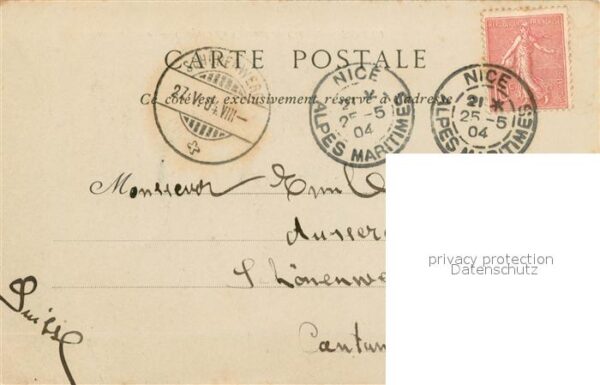 CARTE POSTALE
Ce côté est exclusivement réservé à l'adresse
27.V.04.VIII—
NICE
21 *
25 -5
04
ALPES MARITIMES
NICE
21 *
25 -5
04
ALPES MARITIMES
Monsieur Emil
Ausser
Schönenwe
Canton
Suisse
privacy protection
Datenschutz